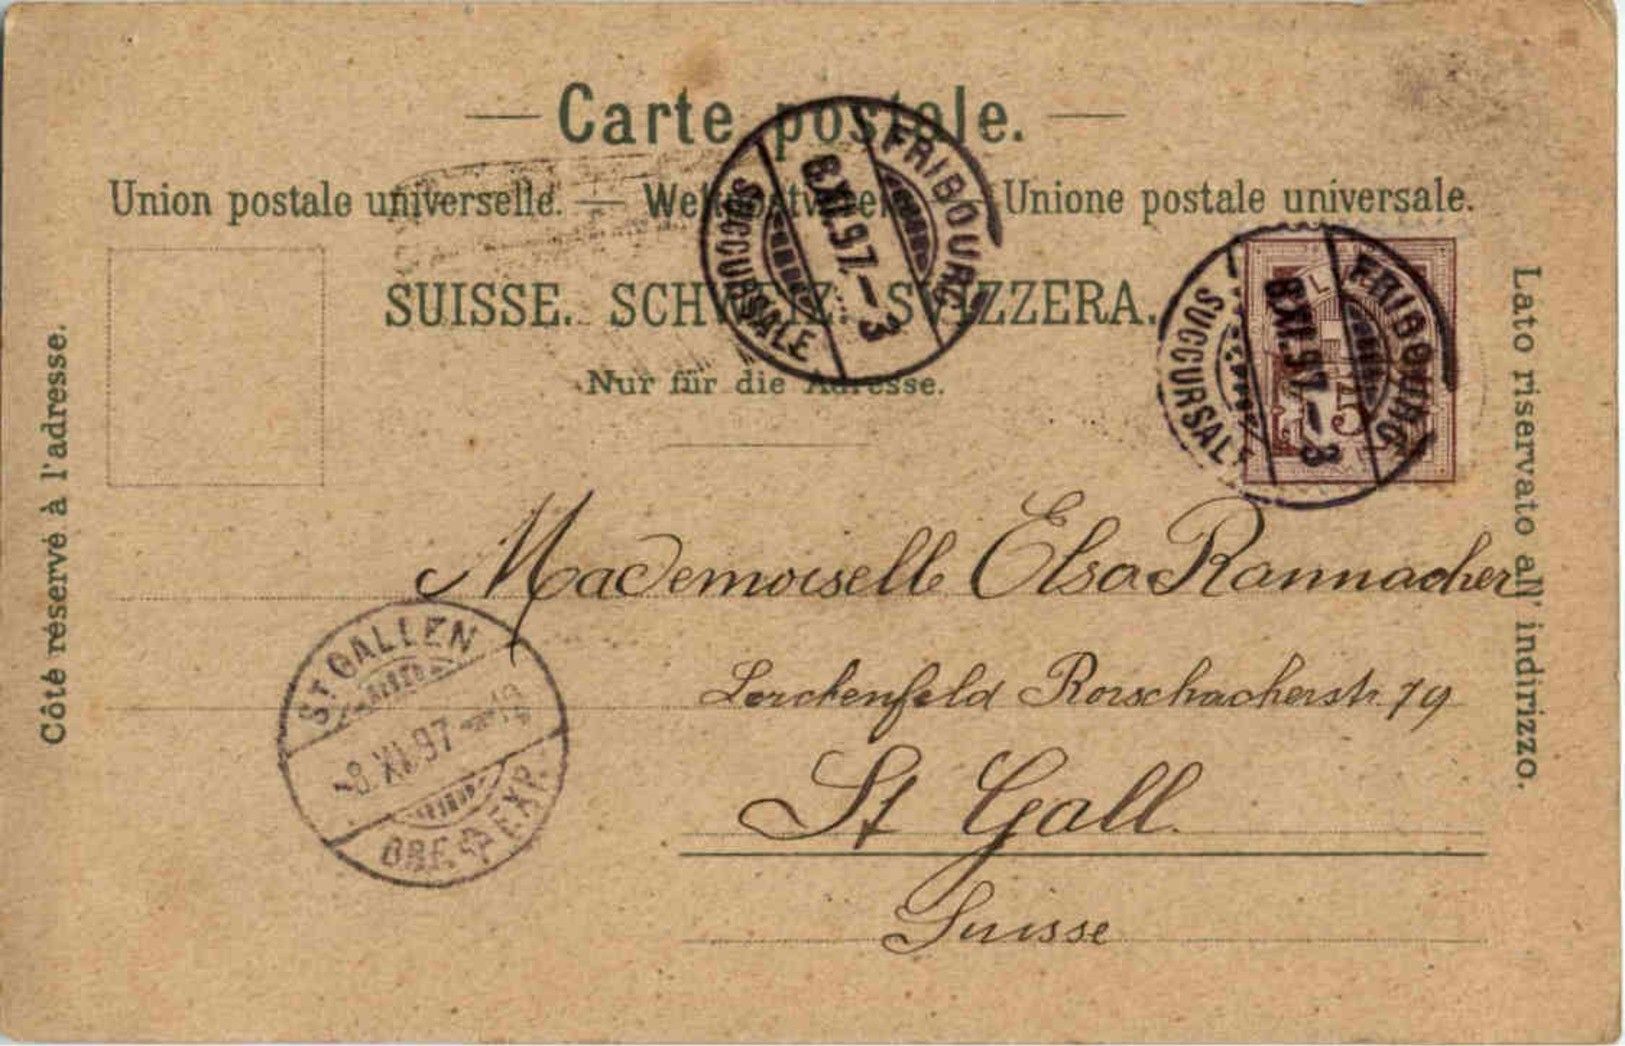 Carte postale.
Union postale universelle. — Weltpostverein. — Unione postale universale.
SUISSE. SCHWEIZ. SVIZZERA.
Nur für die Adresse.
Côté réservé à l'adresse.
Lato riservato all' indirizzo.
FRIBOURG
8.XI.97.–3
SUCCURSALE
FRIBOURG
8.XI.97.–3
SUCCURSALE
Mademoiselle Elsa Rannacher
Lerchenfeld Rorschacherstr. 79
St Gall.
Suisse
ST GALLEN
8.XI.97
BRF. EXP.